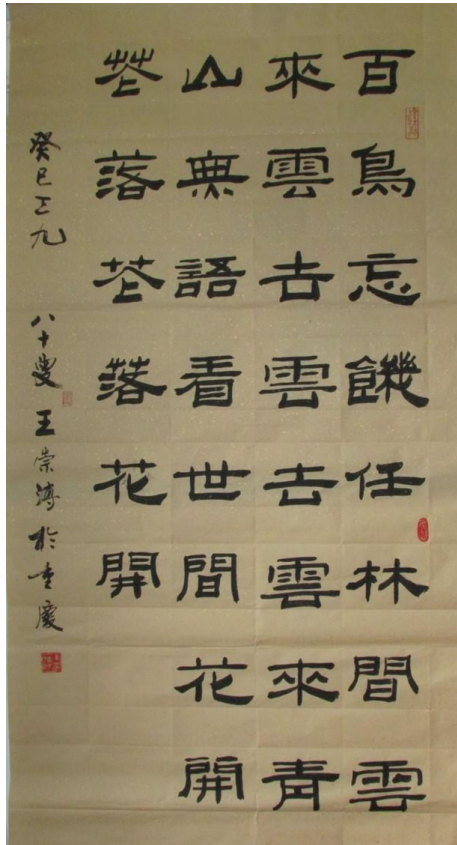 百鳥忘饑任林間雲
來雲去雲去雲來青
山無語看世間花開
花落花落花開
癸巳三九 八十叟 王崇 於重慶